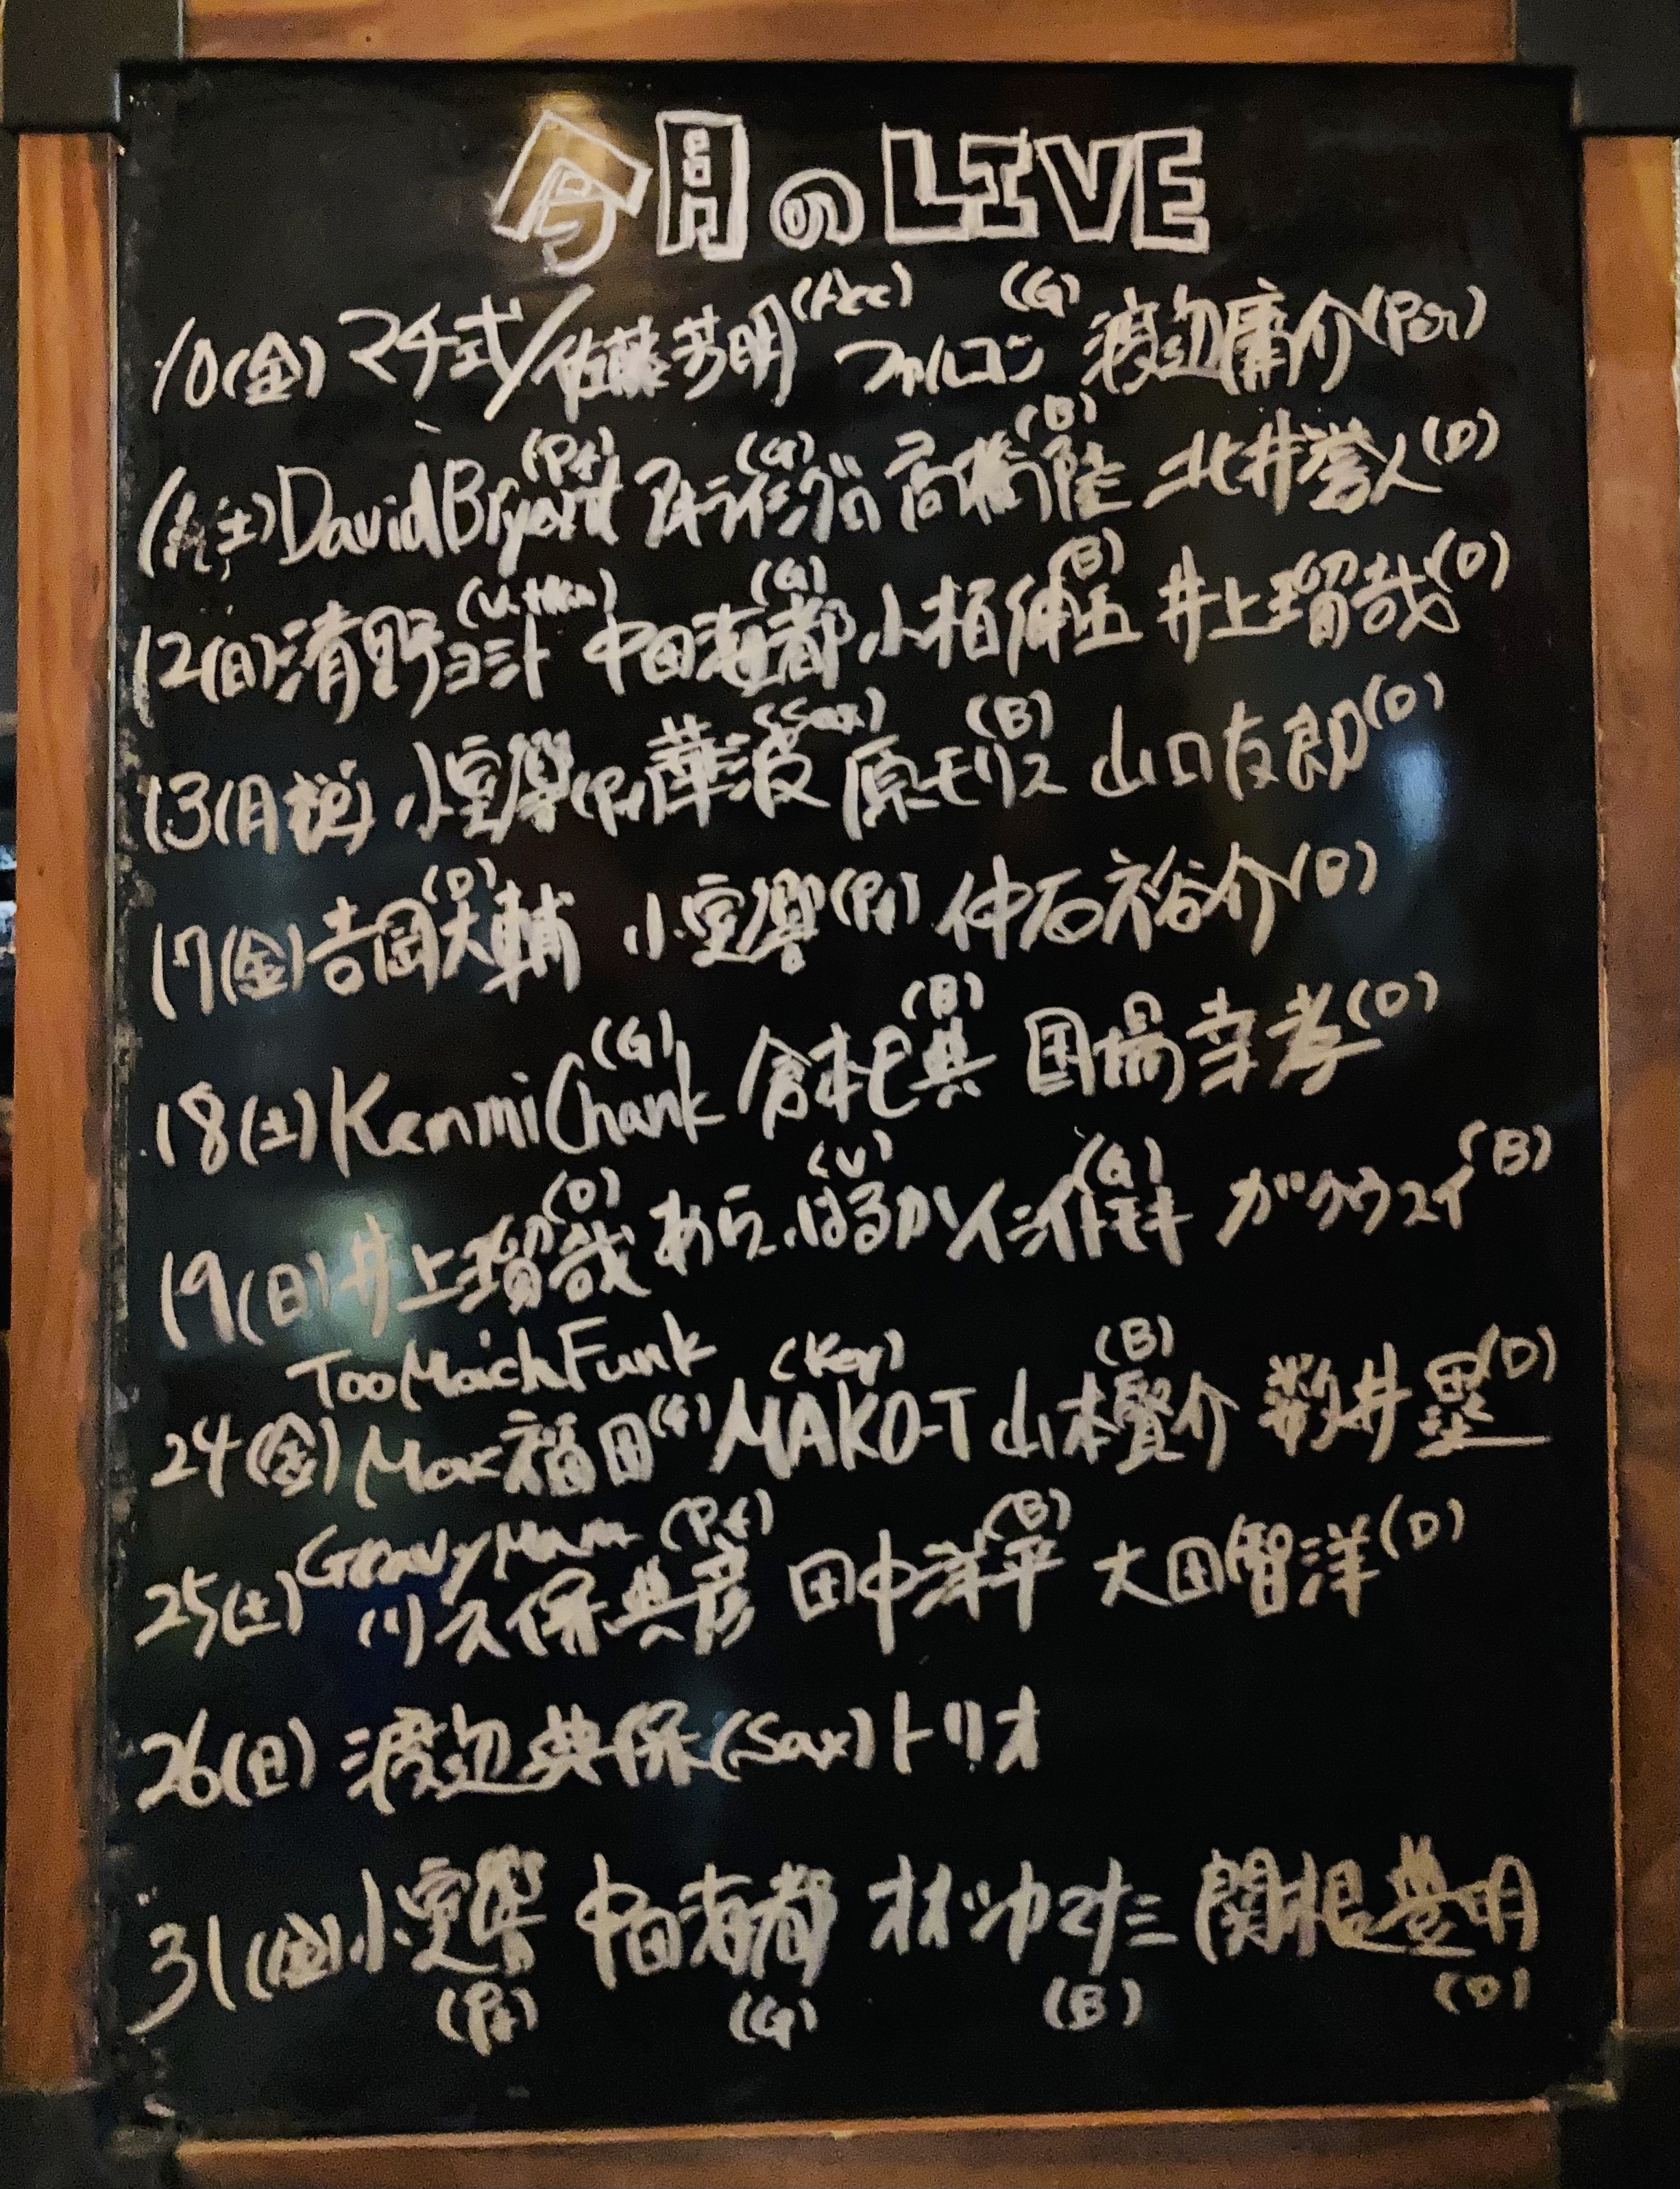 今月のLIVE
10(金) マチ式/佐藤芳明(Acc) ファルコン(G) 渡辺庸介(Per)
(土) David Bryant(Pf) アキライシグロ(G) 高橋陸(B) 北井誉人(D)
12(日) 清野ヨシト 中田海都(G) 小栢伸五(B) 井上瑠哉(D)
13(月祝) 小室響(Pf) 華波(Sax) 原モリス(B) 山口友郎(D)
17(金) 吉岡大輔(D) 小室響(Pf) 仲石裕介(B)
18(土) KenmiChank(G) 倉本巴典(B) 国場幸孝(D)
19(日) 井上瑠哉(D) あら、はるか(V) イシイトモキ(G) ガクウスイ(B)
TooMaichFunk
24(金) Max福田(G) MAKO-T(Key) 山本賢介(B) 数井塁(D)
25(土) GravyMam 川久保典彦(Pf) 田中洋平(B) 大田智洋(D)
26(日) 渡辺典保(Sax)トリオ
31(金) 小室響(Pf) 中田海都(G) オオツカマナミ(B) 関根豊明(D)